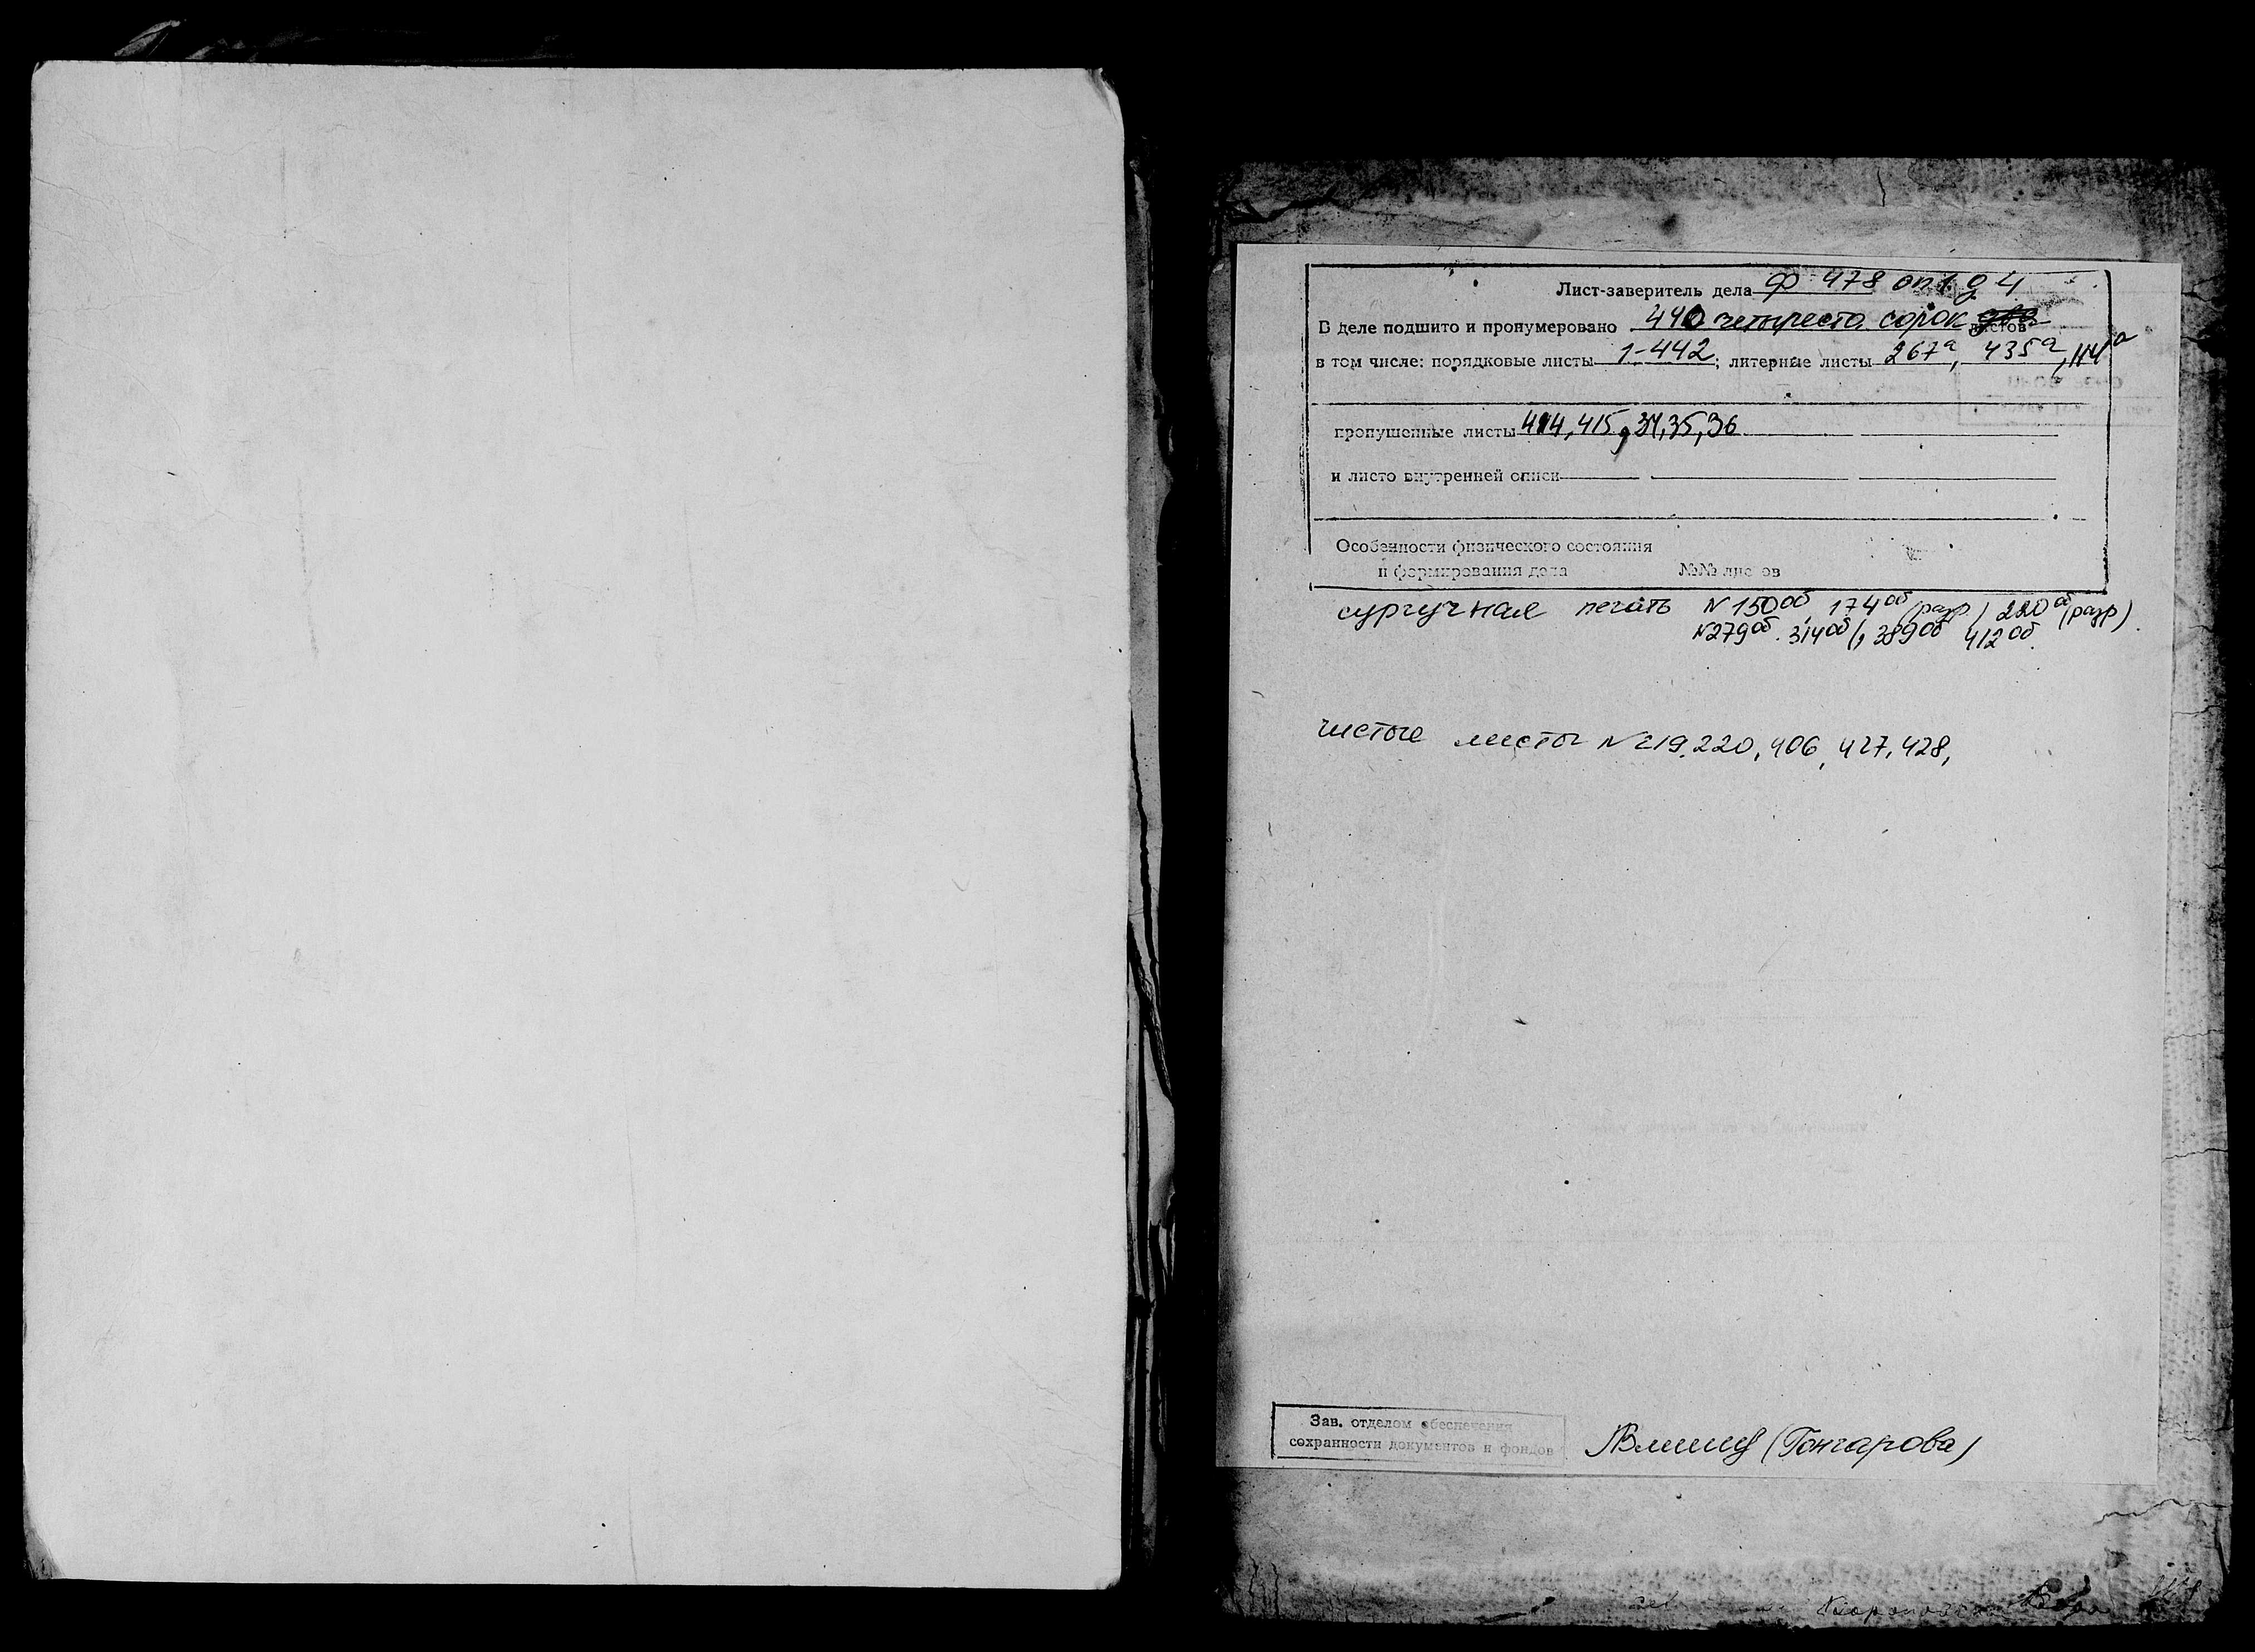 Лист-заверитель дела ф 478 оп 1 д 4
В деле подшито и пронумеровано 440 четыреста сорок два листов
в том числе: порядковые листы 1-442; литерные листы 267а, 435а, 114а
пропушенные листы 414, 415, 34, 35, 36
и листо внутренней описи
Особенности физического состояния
и формирования дела №№ листов
сургучная печать N 150об, 174об (разр) 220об (разр).
N279об. 314об, 389об 412об.
чистые листы N 219, 220, 406, 427, 428,
Зав. отделом обеспечения
сохранности документов и фондов
(Гончарова)